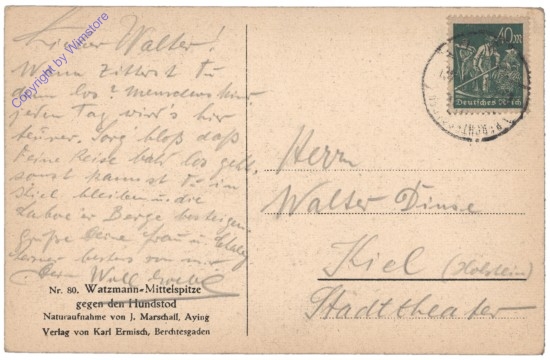 Copyright by Wimstore
Lieber Walter!
Wann zitterst Du
denn los? Menschenskind,
jeden Tag wird's hier
teurer. Sorg' bloß daß
Deine Reise bald los geht,
sonst kannst Du in
Kiel bleiben u. die
Laboe'er Berge besteigen.
Grüße Deine Frau u.
bestens von
Dein Willi
Nr. 80. Watzmann-Mittelspitze
gegen den Hundstod
Naturaufnahme von J. Marschall, Aying
Verlag von Karl Ermisch, Berchtesgaden
40m
Deutsches Reich
Herrn
Walter Dinse
Kiel (Holstein)
Stadttheater